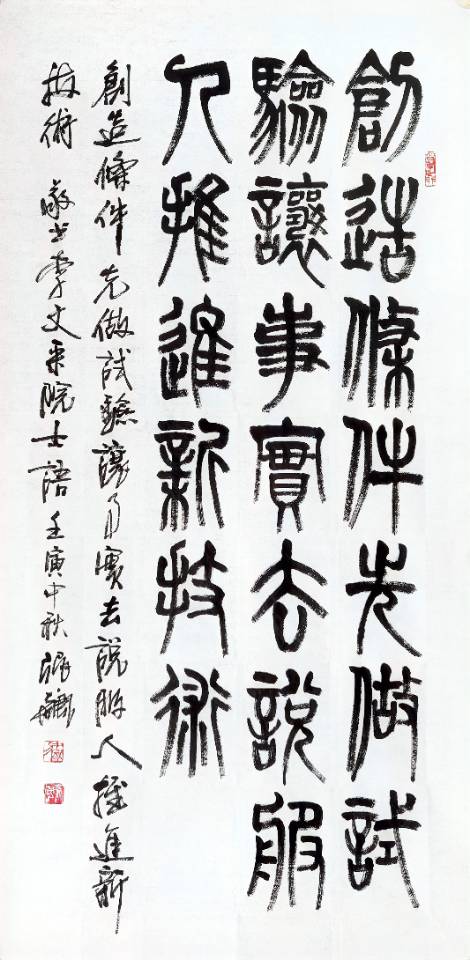 創造條件先做試
驗讓事實去說服
人推進新技術
創造條件先做試驗讓事實去說服人推進新
技術 敬書李文采院士語 壬寅中秋 張